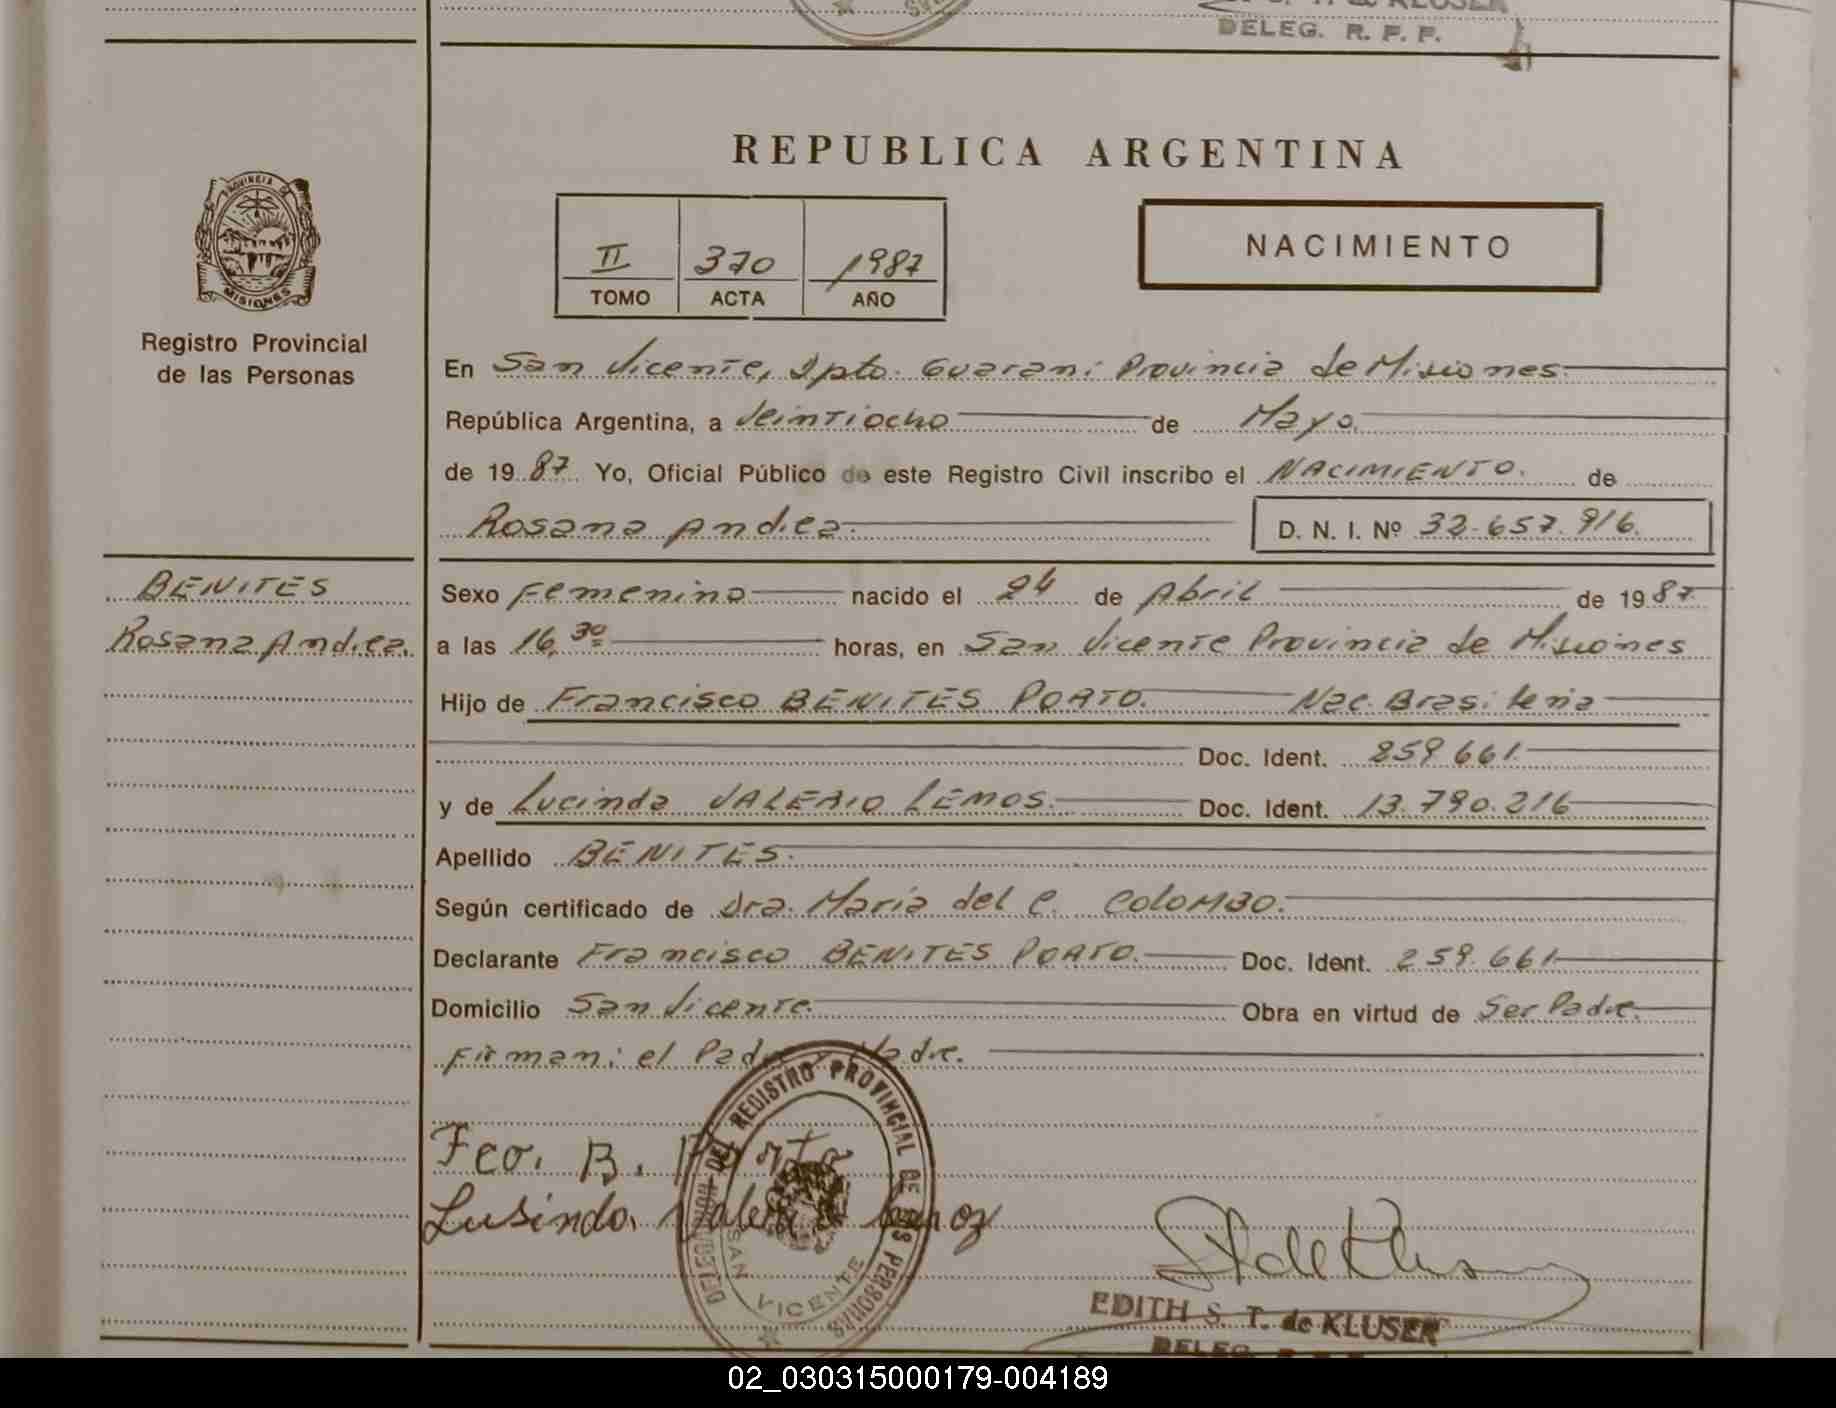 DELEG. R. F. F.
REPUBLICA ARGENTINA
PROVINCIA DE
MISIONES
Registro Provincial
de las Personas
II 370 1987
TOMO ACTA AÑO
NACIMIENTO
En San Vicente, Dpto. Guarani Provincia de Misiones
República Argentina, a Veintiocho de Mayo
de 1987 Yo, Oficial Público de este Registro Civil inscribo el NACIMIENTO. de
Rosana Andrea. D. N. I. Nº 32.657.916.
BENITES
Rosana Andrea.
Sexo Femenino nacido el 24 de Abril de 1987
a las 16,30 horas, en San Vicente Provincia de Misiones
Hijo de Francisco BENITES PORTO. Nac. Brasileña
Doc. Ident. 859.661.
y de Lucinda VALERIO LEMOS. Doc. Ident. 13.790.216
Apellido BENITES.
Según certificado de Dra. María del C. COLOMBO.
Declarante Francisco BENITES PORTO. Doc. Ident. 259.661
Domicilio San Vicente. Obra en virtud de Ser Padre.
Firman: el Padre y Madre.
Fco. B. Porto
Lusinda
DELEGACION DEL REGISTRO PROVINCIAL DE LAS PERSONAS
SAN VICENTE
EDITH S. T. de KLUSER
DELEG.
02_030315000179-004189